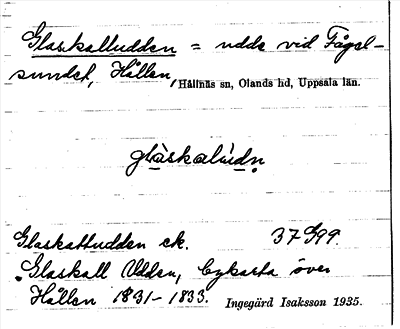 Glaskalludden = udde vid Fågel-
sundet, Hållen, Hållnäs sn, Olands hd, Uppsala län.
glàskalùdn
Glaskalludden ek. 37 G 99.
"Glaskall Udden, bykarta över
Hållen 1831-1833. Ingegärd Isaksson 1935.